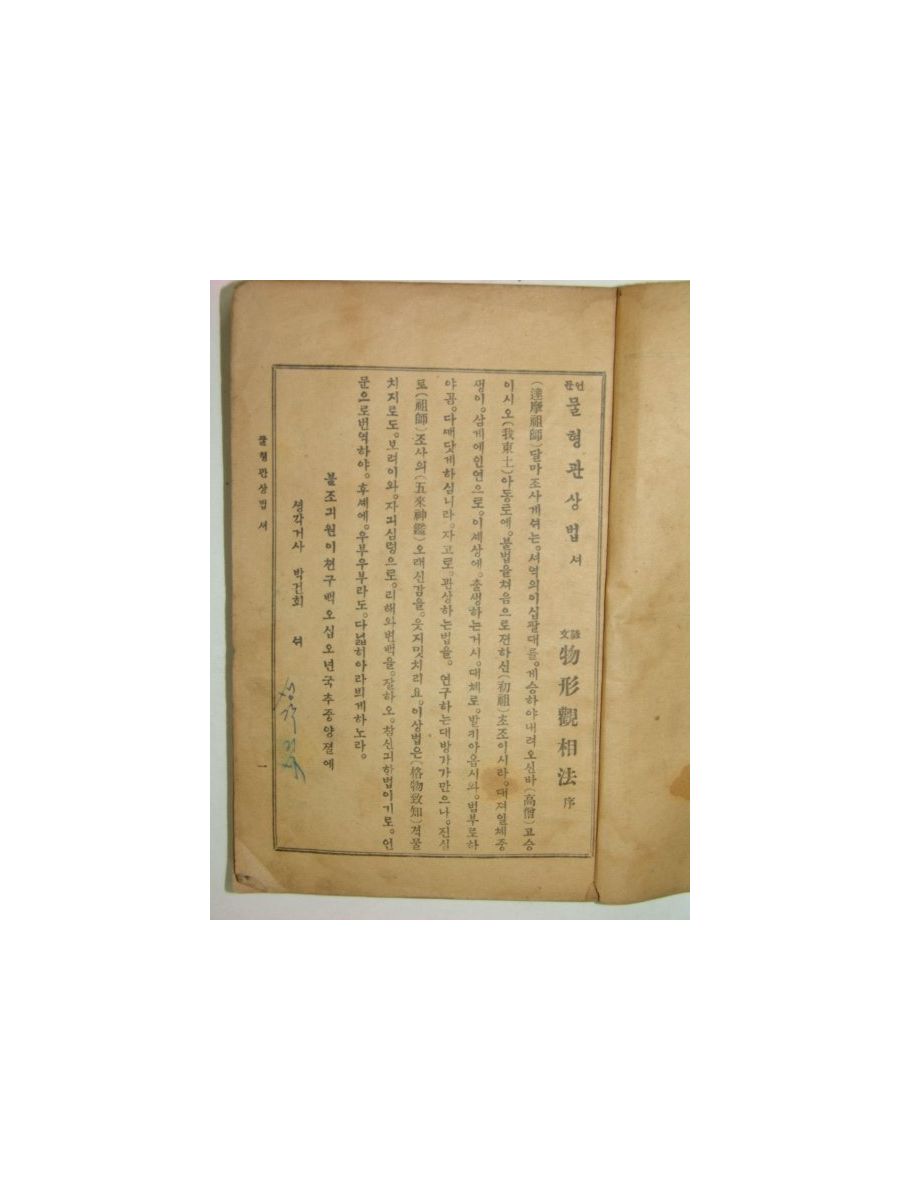 언문 물형관상법 셔 諺文 物形觀相法 序
(達摩祖師)달마조사게셔는。셔역의이십팔대를。게승하야내려오신바(高僧)고승
이시오(我東土)아동토에。불법을쳐음으로젼하신(初祖)초조이시라。대져일체중
생이。삼게에인연으로。이세상에。출생하는거시。대체로。발키아옵시와。범부로하
야곰。다깨닷게하심니라。자고로。관상하는법을。연구하는대방가가만으나。진실
로(祖師)조사의(五來神鑑)오래신감을。웃지밋치리요。이상법은(格物致知)격물
치지로도。보려이와。자긔심령으로。리해와변백을。잘하오。참신긔하법이기로。언
문으로번역하야。후세에。우부우부라도。다넓히아라븨게하노라。
불조긔원이쳔구백오십오년국추중양졀에
셩각거사 박건회 셔
물형관상법 셔
一